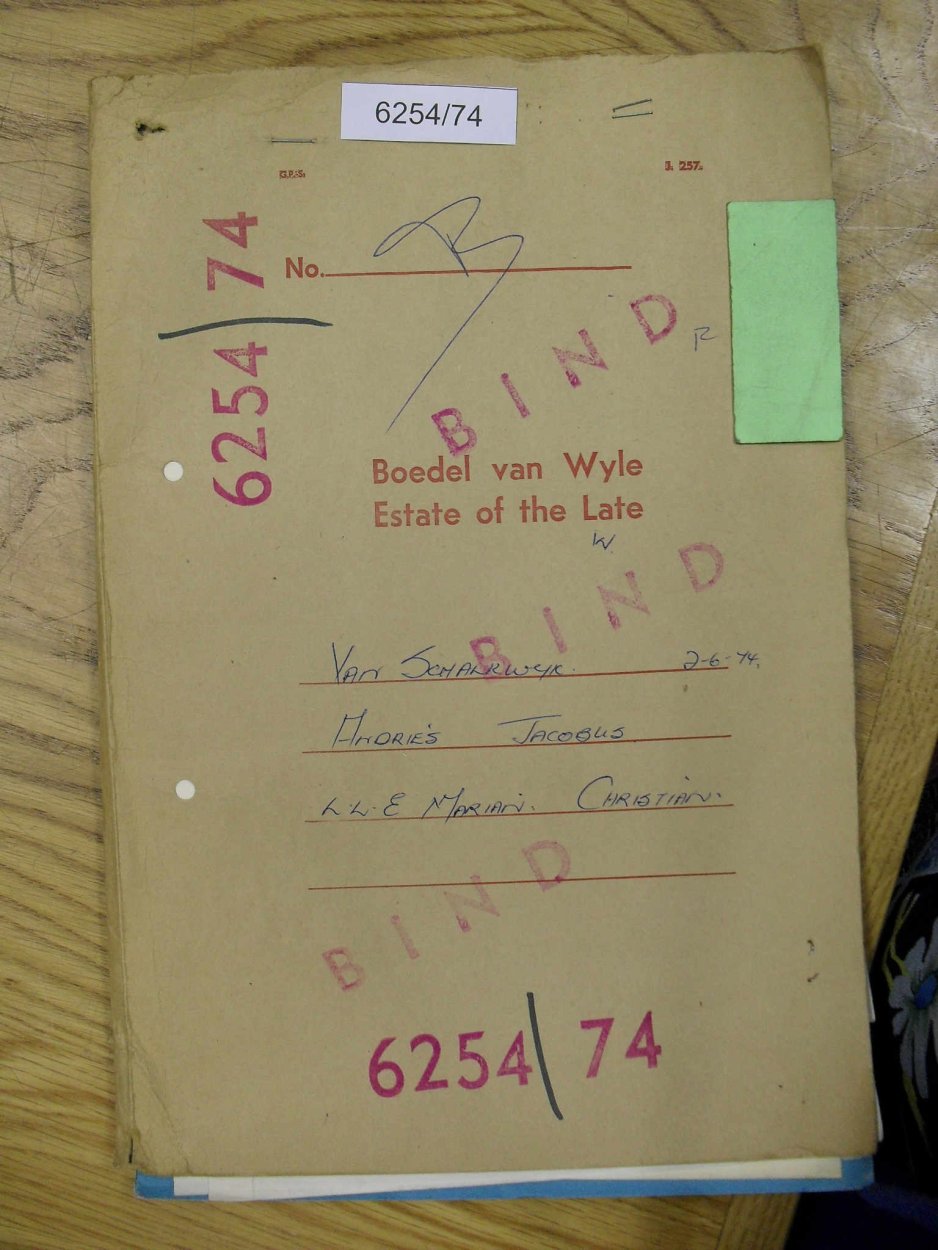 6254/74
G.P.-S. J. 257.
No.
6254/74
BIND
R
Boedel van Wyle
Estate of the Late
W.
BIND
VAN SCHALKWYK. 2-6-74.
ANDRIES JACOBUS
L.L.E MARIAN. CHRISTIAN.
BIND
6254/74